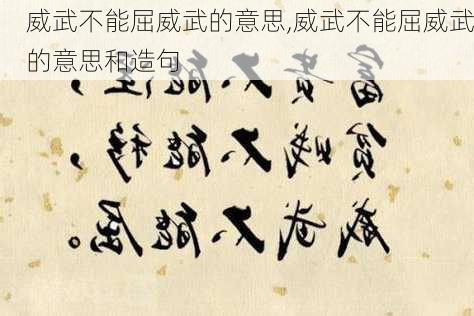 威武不能屈威武的意思,威武不能屈威武
的意思和造句
富貴不能淫，
貧賤不能移，
威武不能屈。